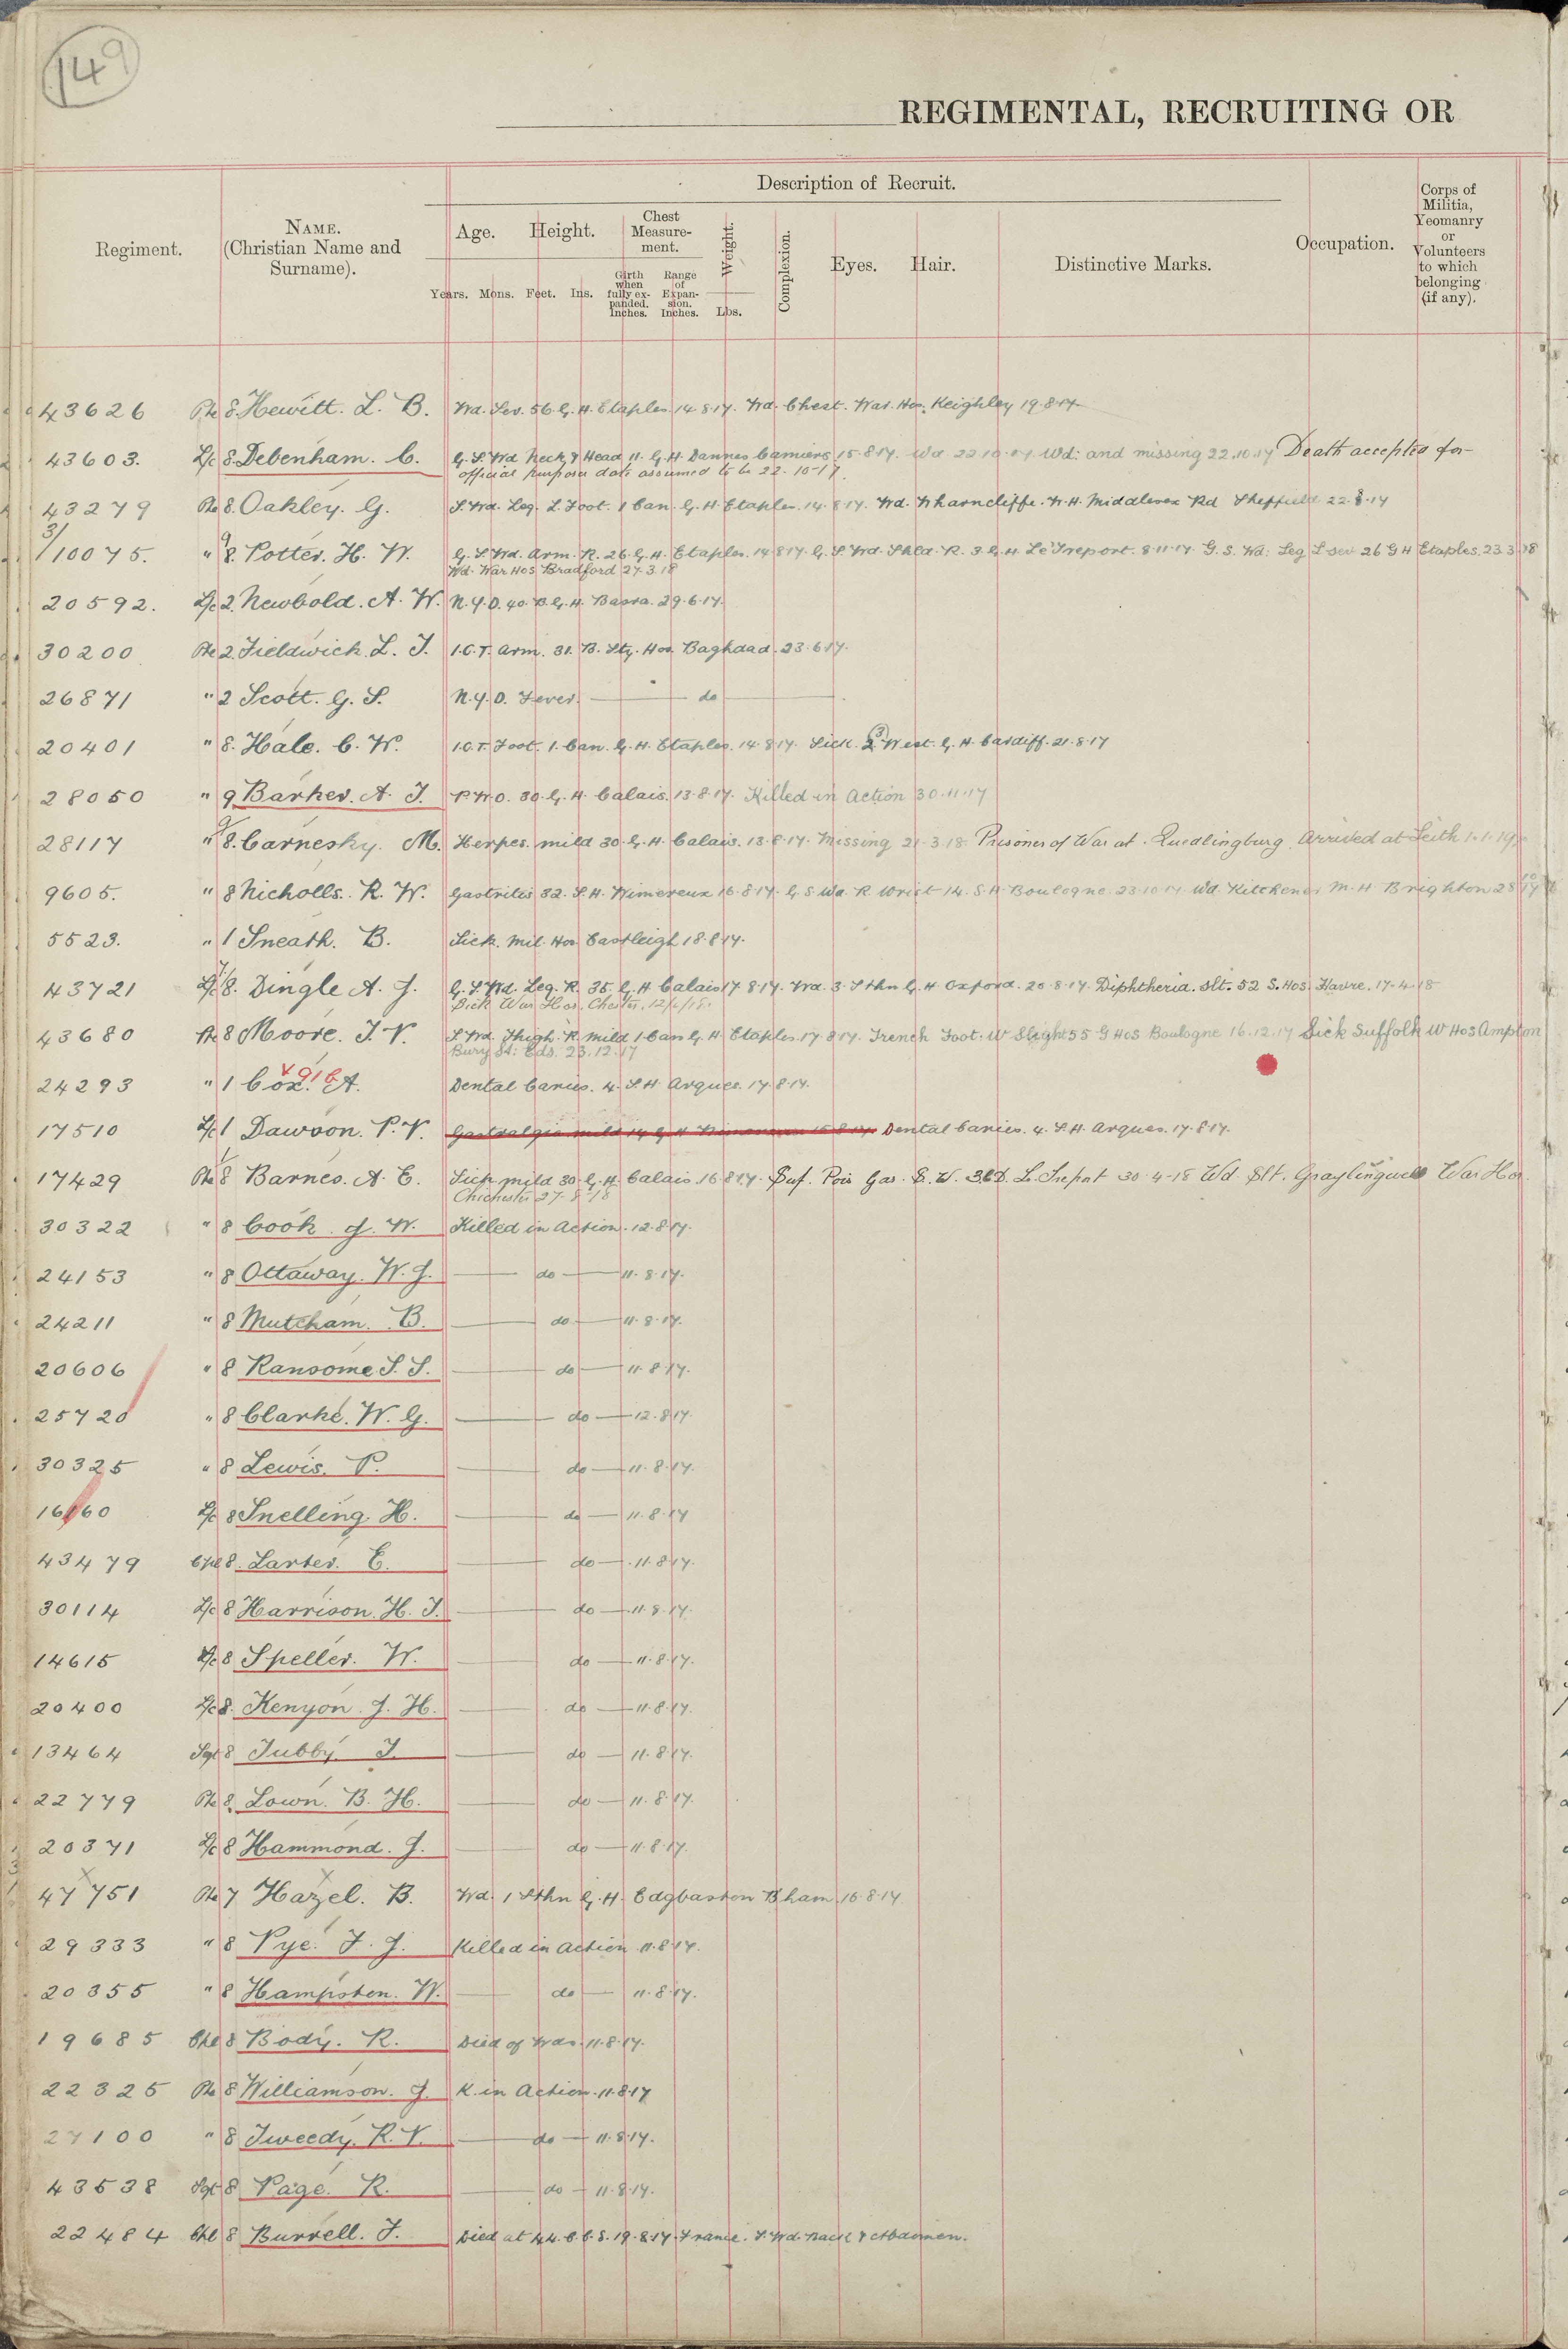 149
REGIMENTAL, RECRUITING OR
Regiment.
NAME.
(Christian Name and
Surname).
Description of Recruit.
Age.
Height.
Chest
Measure-
ment.
Weight.
Complexion.
Eyes.
Hair.
Distinctive Marks.
Occupation.
Corps of
Militia,
Yeomanry
or
Volunteers
to which
belonging
(if any).
Years. Mons. Feet. Ins.
Girth
when
fully ex-
panded.
Inches.
Range
of
Expan-
sion.
Inches.
Lbs.
43626 Pte 8. Hewitt. L. B. Wd. Sev. 56. G. H. Etaples. 14.8.17. Wd. Chest. War. Hos. Keighley 19.8.17.
43603. L/c 8. Debenham. C. G. S. Wd Neck & Head 11. G. H. Dannes Camiers 15.8.17. Wd 22.10.17 Wd: and missing 22.10.17 Death accepted for
official purposes date assumed to be 22-10-17.
43279 Pte 8. Oakley. G. S. Wd. Leg. L. Foot. 1 Can. G. H. Etaples. 14.8.17. Wd. Wharncliffe. W. H. Middlewood Rd Sheffield 22.8.17
3/10075. " 8. Potter. H. W. G. S. Wd. Arm. R. 26. G. H. Etaples. 14.8.17. G. S. Wd. Shld. R. 3 G. H. Le Treport. 8.11.17. G. S. Wd: Leg L sev 26 G H Etaples. 23.3.18
Wd. War Hos Bradford 27.3.18
20592. L/c 2. Newbold. A. W. N. Y. D. 40. B. G. H. Basra. 29.6.17.
30200 Pte 2. Fieldwick. L. J. I.C.T. Arm. 31. B. Sty. Hos. Baghdad. 23.6.17.
26871 " 2 Scott. G. S. N. Y. D. Fever. do
20401 " 8. Hale. C. W. I.C.T. Foot. 1. Can. G. H. Etaples. 14.8.17. Sick. 3 West. G. H. Cardiff. 21.8.17
28050 " 9 Barker. A. J. P.U.O. 30. G. H. Calais. 13.8.17. Killed in Action 30.11.17
28117 " 8. Carnesky. M. Herpes. mild 30. G. H. Calais. 13.8.17. Missing 21.3.18 Prisoner of War at Quedlingburg. Arrived at Leith 1.1.19
9605. " 8 Nicholls. R. W. Gastritis 32. S. H. Wimereux 16.8.17. G S Wd R. Wrist 14. S. H. Boulogne. 23.10.17 Wd. Kitchener M. H Brighton 28.10.17
5523. " 1 Sneath. B. Sick. Mil. Hos. Eastleigh 18.8.17.
43721 L/c 8. Dingle A. J. G. S. Wd. Leg. R. 35. G. H. Calais 17.8.17. Wd. 3. Sthn G. H. Oxford. 20.8.17. Diphtheria. Slt. 52 S. Hos. Havre. 17-4-18
Sick War Hos. Chester. 12/6/18.
43680 Pte 8 Moore. J. V. S. Wd. Thigh. R. mild 1 Can G. H. Etaples. 17.8.17. Trench Foot. W Slight 55 G Hos Boulogne 16.12.17 Sick Suffolk W Hos Ampton
Bury St: Eds. 23.12.17
24293 " 1 Cox. A. Dental Caries. 4. S. H. Arques. 17.8.17.
17510 L/c 1 Dawson. P. V. Gastralgia mild 14 G. H Wimereux 16.8.17. Dental Caries. 4. S. H. Arques. 17.8.17.
17429 Pte 8 Barnes. A. E. Sick mild 30. G. H. Calais. 16.8.17. Suf. Pois Gas. S. W. 3CD. Le Treport 30-4-18 Wd. Slt. Graylingwell War Hos
Chichester 27.8.18
30322 " 8 Cook. J. W. Killed in Action. 12.8.17.
24153 " 8 Ottaway. W. J. do 11.8.17.
24211 " 8 Mutcham. B. do 11.8.17.
20606 " 8 Ransome S. S. do 11.8.17.
25720 " 8 Clarke. W. G. do 12.8.17.
30325 " 8 Lewis. P. do 11.8.17.
16160 L/c 8 Snelling H. do 11.8.17
43479 Cpl 8. Larter. E. do 11.8.17.
30114 L/c 8 Harrison. H. J. do 11.8.17.
14615 L/c 8 Speller. W. do 11.8.17.
20400 L/c 8. Kenyon. J. H. do 11.8.17.
13464 Sgt 8 Tubby. J. do 11.8.17.
22779 Pte 8. Lown. B. H. do 11.8.17.
20371 L/c 8 Hammond. J. do 11.8.17.
47751 Pte 7 Hazel. B. Wd. 1 Sthn G. H. Edgbaston B'ham. 16.8.17.
29333 " 8 Pye. F. J. Killed in Action 11.8.17.
20355 " 8 Hampston. W. do 11.8.17.
19685 Cpl 8 Body. R. Died of Wds. 11.8.17.
22325 Pte 8 Williamson. J. K. in Action. 11.8.17
27100 " 8 Tweedy. R. V. do 11.8.17.
43538 Sgt 8 Page. R. do 11.8.17.
22484 Cpl 8 Burrell. F. Died at 44. C. C. S. 19.8.17. France. S. Wd. Back & Abdomen.